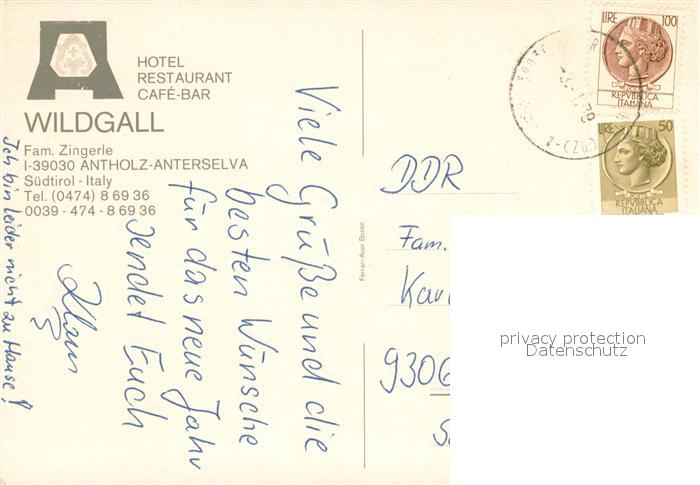 HOTEL
RESTAURANT
CAFÉ-BAR
WILDGALL
Fam. Zingerle
I-39030 ANTHOLZ-ANTERSELVA
Südtirol - Italy
Tel. (0474) 8 69 36
0039 - 474 - 8 69 36
Viele Grüße und die
besten Wünsche
für das neue Jahr
sendet Euch
Klaus
Ich bin leider nicht zu Hause!
Ferrari-Auer Bozen
LIRE 100
POSTE
REPVBBLICA
ITALIANA
LIRE 50
POSTE
REPVBBLICA
ITALIANA
DDR
Fam.
9306
privacy protection
Datenschutz